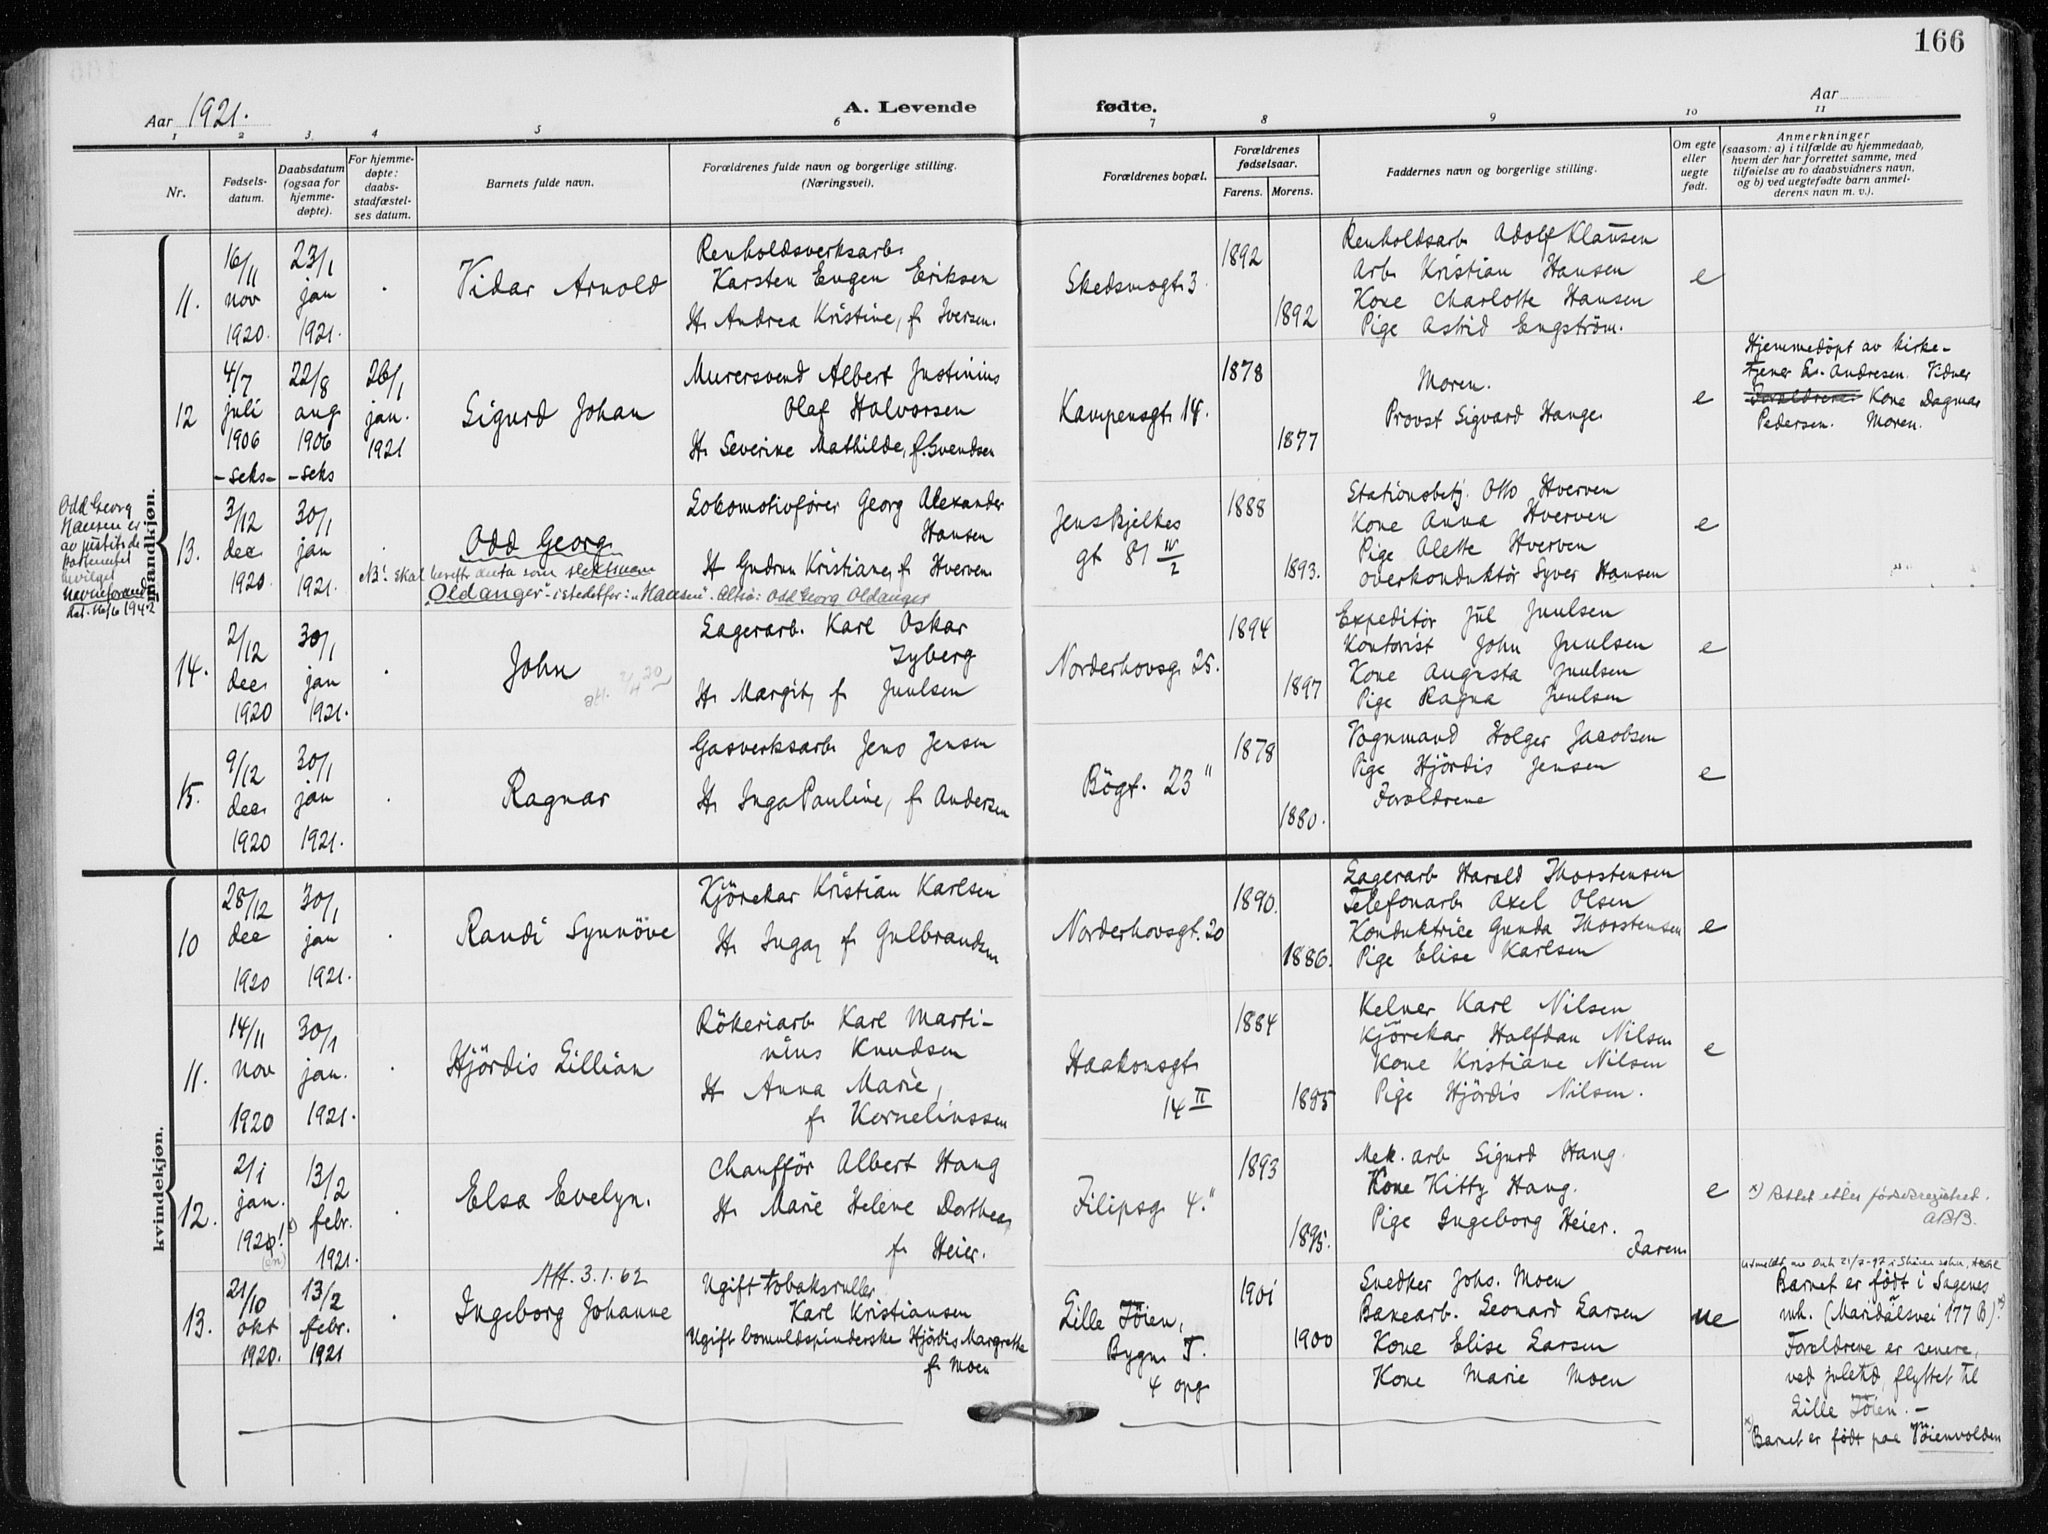 166
Aar 1921.
A. Levende fødte.
Aar
1 2 3 4 5 6 7 8 9 10 11
Nr.
Fødsels-
datum.
Daabsdatum
(ogsaa for
hjemme-
døpte).
For hjemme-
døpte:
daabs-
stadfæstel-
ses datum.
Barnets fulde navn.
Forældrenes fulde navn og borgerlige stilling.
(Næringsvei).
Forældrenes bopæl.
Forældrenes
fødselsaar.
Farens. Morens.
Faddernes navn og borgerlige stilling.
Om egte
eller
uegte
født.
Anmerkninger
(saasom: a) i tilfælde av hjemmedaab,
hvem der har forrettet samme, med
tilføielse av to daabsvidners navn,
og b) ved uegtefødte barn anmel-
derens navn m. v.).
mandkjøn.
11.
16/11
nov
1920.
23/1
jan
1921.
Vidar Arnold
Renholdsverksarb.
Karsten Eugen Eriksen
H. Andrea Kristine, f. Iversen.
Skedsmogt. 3.
1892
1892
Renholdsarb. Adolf Klausen
Arb. Kristian Hansen
Kone Charlotte Hansen
Pige Astrid Engström.
e
12
4/7
juli
1906
-seks-
22/8
aug
1906
-seks
26/1
jan.
1921
Sigurd Johan
Murersvend Albert Justinius
Olaf Halvorsen
H. Severine Mathilde, f. Svendsen
Kampensgt. 14.
1878
1877
Moren.
Provst Sigvard Hauge
e
Hjemmedöpt av kirke-
tjener Andresen. Vidner
Forældrene Kone Dagmar
Pedersen. Moren.
Odd Georg
Hansen er
av justitsde
partementet
bevilget
navneforandr.
13.
3/12
dec
1920.
30/1
jan
1921.
Odd Georg
NB! Skal herefter anta som slektsnavn
"Oldanger" istedetfor: "Hansen". Altså: Odd Georg Oldanger
Lokomotivfører Georg Alexander
Hansen
H. Gudrun Kristiane, f. Hverven
Jens Bjelkes
gt 81 IV/2
1888
1893.
Stationsbetj. Otto Hverven
Kone Anna Hverven
Pige Alette Hverven
Overkonduktør Syver Hansen
e
14.
2/12
dec.
1920
30/1
jan
1921.
John
Lagerarb. Karl Oskar
Lyberg
H. Margit, f. Juulsen
Norderhovsg. 25.
1894
1897
Expeditör Jul Juulsen
Kontorist John Juulsen
Kone Augusta Juulsen
Pige Ragna Juulsen
e
15.
9/12
dec.
1920
30/1
jan
1921.
Ragnar
Gasverksarb. Jens Jensen
H. Inga Pauline, f. Andersen
Bögt. 23 "
1878
1880.
Vognmand Holger Jacobsen
Pige Hjördis Jensen
Forældrene
e
kvindekjøn.
10
28/12
dec
1920
30/1
jan
1921.
Randi Synnöve
Kjörekar Kristian Karlsen
H. Inga, f. Gulbrandsen
Norderhovsgt. 20
1890.
1886.
Lagerarb. Harald Thorstensen
Telefonarb. Axel Olsen
Konduktrice Gunda Thorstensen
Pige Elise Karlsen
e
11.
14/11
nov
1920
30/1
jan.
1921.
Hjördis Lillian
Rökeriarb. Karl Marti-
nius Knudsen
H. Anna Marie,
f. Korneliussen
Haakonsgt.
14 II
1884
1885
Kelner Karl Nilsen
Kjörekar Halfdan Nilsen
Kone Kristiane Nilsen
Pige Hjördis Nilsen.
e
12.
2/1
jan.
13/2
febr.
1921.
Elsa Evelyn.
Chaufför Albert Haug
H. Marie Helene Dorthea,
f. Heier.
Filipsg. 4."
1893
1895.
Mek. arb. Sigurd Haug.
Kone Kitty Haug.
Pige Ingeborg Heier.
Faren
e
x) Rettet etter fødselsregistret.
ABB.
13.
21/10
okt
1920.
13/2
febr.
1921
Att. 3.1.62
Ingeborg Johanne
Ugift tobaksruller
Karl Kristiansen
Ugift bomuldspinderske Hjördis Margrethe
f. Moen
Lille Töien,
Bygn. T.
4 opg
1901
1900
Snedker Johs. Moen
Banearb. Leonard Larsen
Kone Elise Larsen
Kone Marie Moen
ue
Barnet er född i Sagenes
mh. (Maridalsvei 177 B) x)
Forældrene er senere,
ved juletid, flyttet til
Lille Töien. -
x) Barnet er född paa Töienvolden